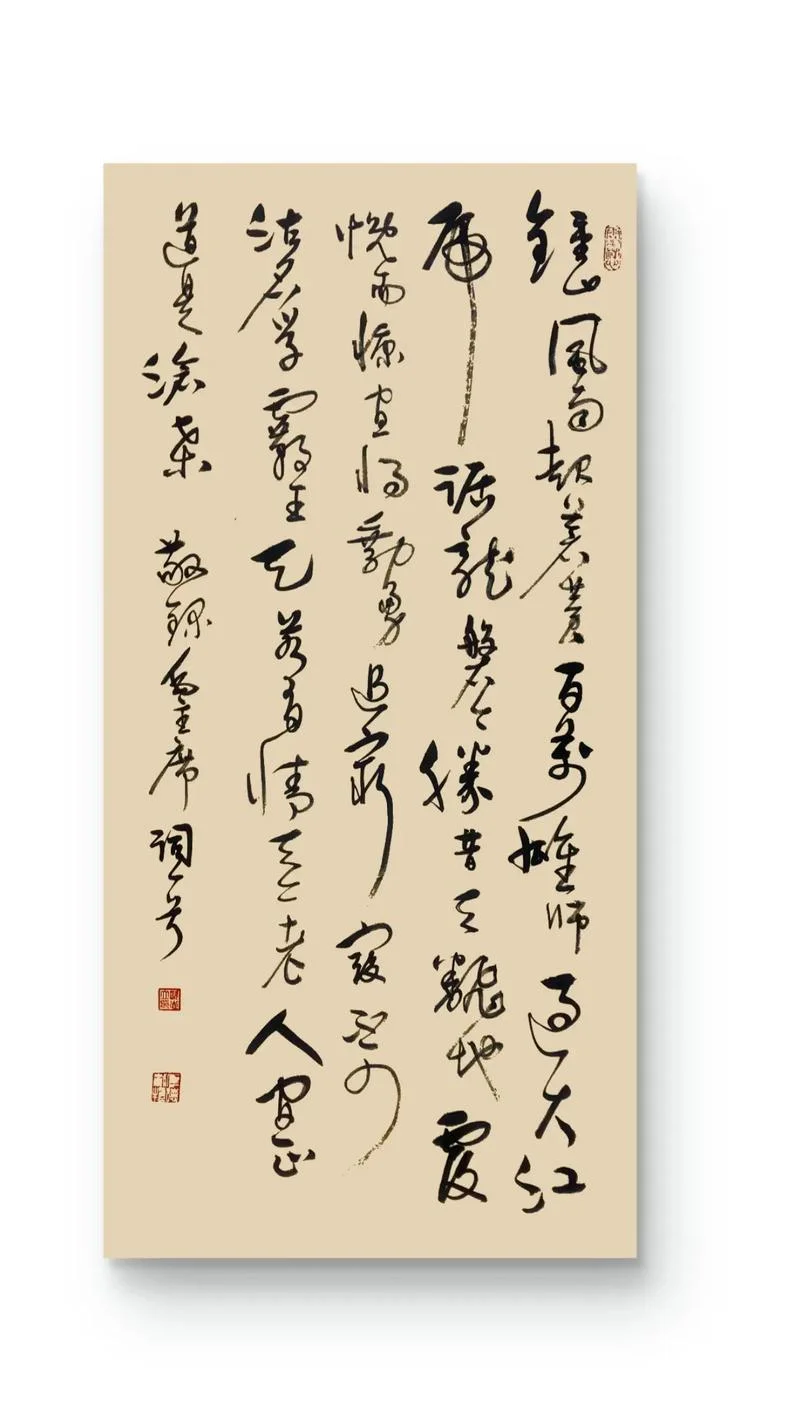 鍾山風雨起蒼黃百萬雄師過大江
虎踞龍磐今勝昔天飜地覆
慨而慷宜將剩勇追窮寇不可
沽名學霸王天若有情天亦老人間正
道是滄桑 敬錄毛主席詞一首